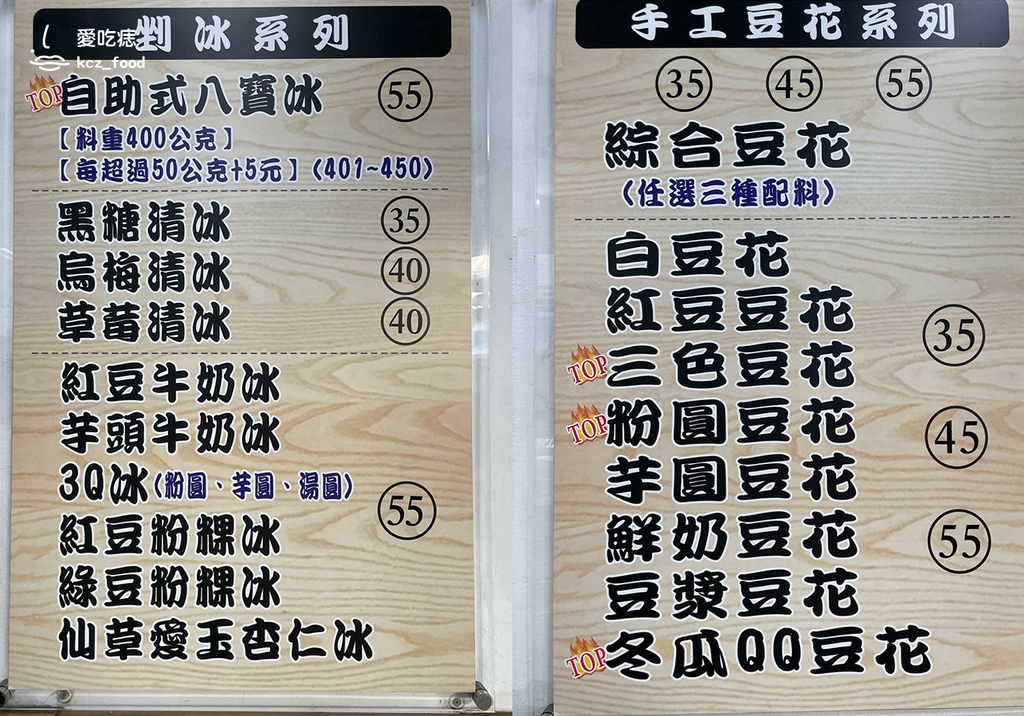 愛吃痣
kcz_food
剉冰系列
TOP 自助式八寶冰 55
【料重400公克】
【每超過50公克+5元】(401~450)
黑糖清冰 35
烏梅清冰 40
草莓清冰 40
紅豆牛奶冰
芋頭牛奶冰
3Q冰(粉圓、芋圓、湯圓)
55
紅豆粉粿冰
綠豆粉粿冰
仙草愛玉杏仁冰
手工豆花系列
35 45 55
綜合豆花
(任選三種配料)
白豆花
紅豆豆花
35
TOP 三色豆花
TOP 粉圓豆花
45
芋圓豆花
鮮奶豆花
55
豆漿豆花
TOP 冬瓜QQ豆花